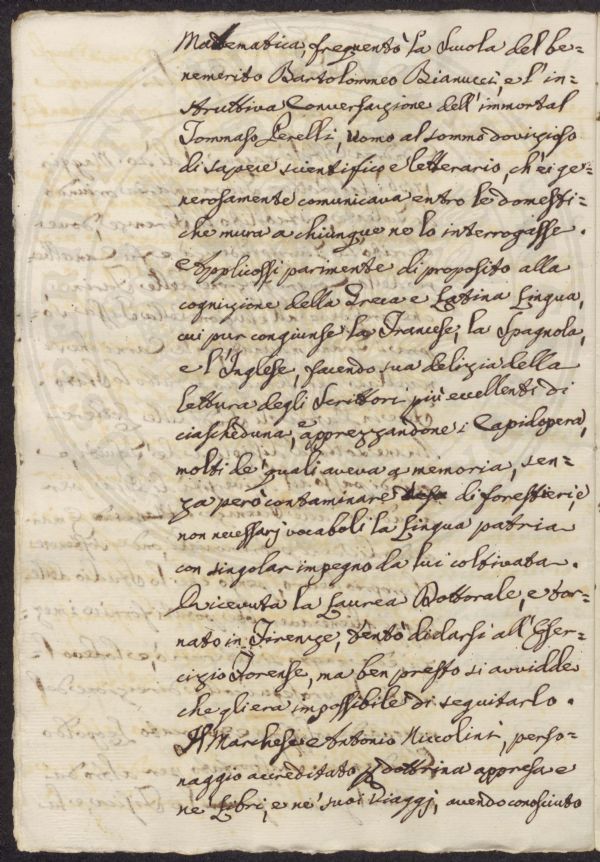 Matematica, frequentò la Scuola del be=
nemerito Bartolommeo Bianucci, e l'in=
struttiva Conversazione dell'immortal
Tommaso Perelli, Uomo al sommo dovizioso
di sapere scientifico e letterario, ch'ei ge=
nerosamente comunicava entro le domesti=
che mura a chiunque ne lo interrogasse.
Applicossi parimente di proposito alla
cognizione della Greca e Latina Lingua,
cui pur congiunse la Francese, la Spagnola,
e l'Inglese, facendo sua delizia della
lettura degli Scrittori più eccellenti di
ciascheduna, e apprezzandone i Capidopera,
molti de' quali aveva a memoria, sen=
za però contaminare di forestieri, e
non necessarj vocaboli la Lingua patria
con singolar impegno da lui coltivata.
Ricevuta la Laurea Dottorale, e tor=
nato in Firenze, tentò di darsi all'Eser=
cizio Forense, ma ben presto si avvidde
che gli era impossibile di seguitarlo.
Il Marchese Antonio Niccolini, perso=
naggio accreditato p dottrina appresa e
ne' Libri, e ne' suoi Viaggj, avendo conosciuto